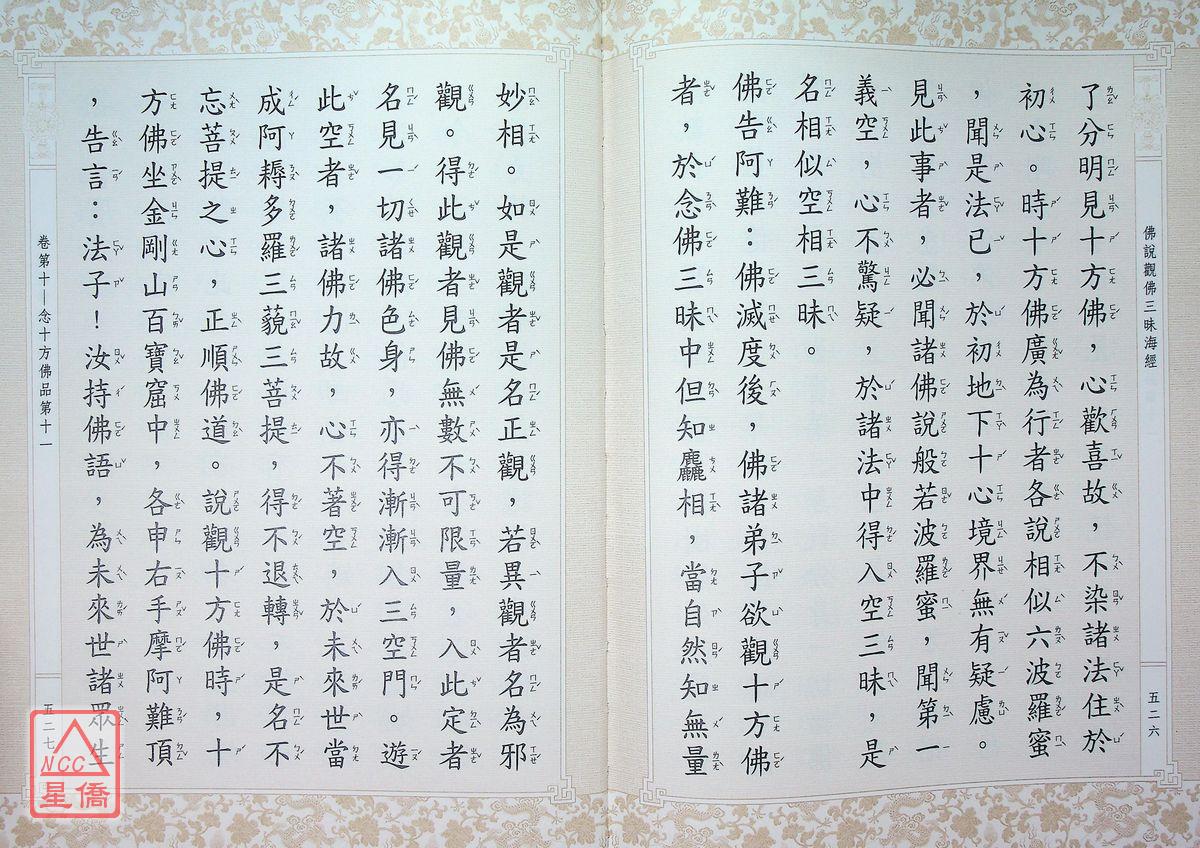 佛說觀佛三昧海經
五二六
了分明見十方佛，心歡喜故，不染諸法住於
初心。時十方佛廣為行者各說相似六波羅蜜
，聞是法已，於初地下十心境界無有疑慮。
見此事者，必聞諸佛說般若波羅蜜，聞第一
義空，心不驚疑，於諸法中得入空三昧，是
名相似空相三昧。
佛告阿難：佛滅度後，佛諸弟子欲觀十方佛
者，於念佛三昧中但知麤相，當自然知無量
妙相。如是觀者是名正觀，若異觀者名為邪
觀。得此觀者見佛無數不可限量，入此定者
名見一切諸佛色身，亦得漸漸入三空門。遊
此空者，諸佛力故，心不著空，於未來世當
成阿耨多羅三藐三菩提，得不退轉，是名不
忘菩提之心，正順佛道。說觀十方佛時，十
方佛坐金剛山百寶窟中，各申右手摩阿難頂
，告言：法子！汝持佛語，為未來世諸眾生
卷第十—念十方佛品第十一
五二七
NCC
星僑